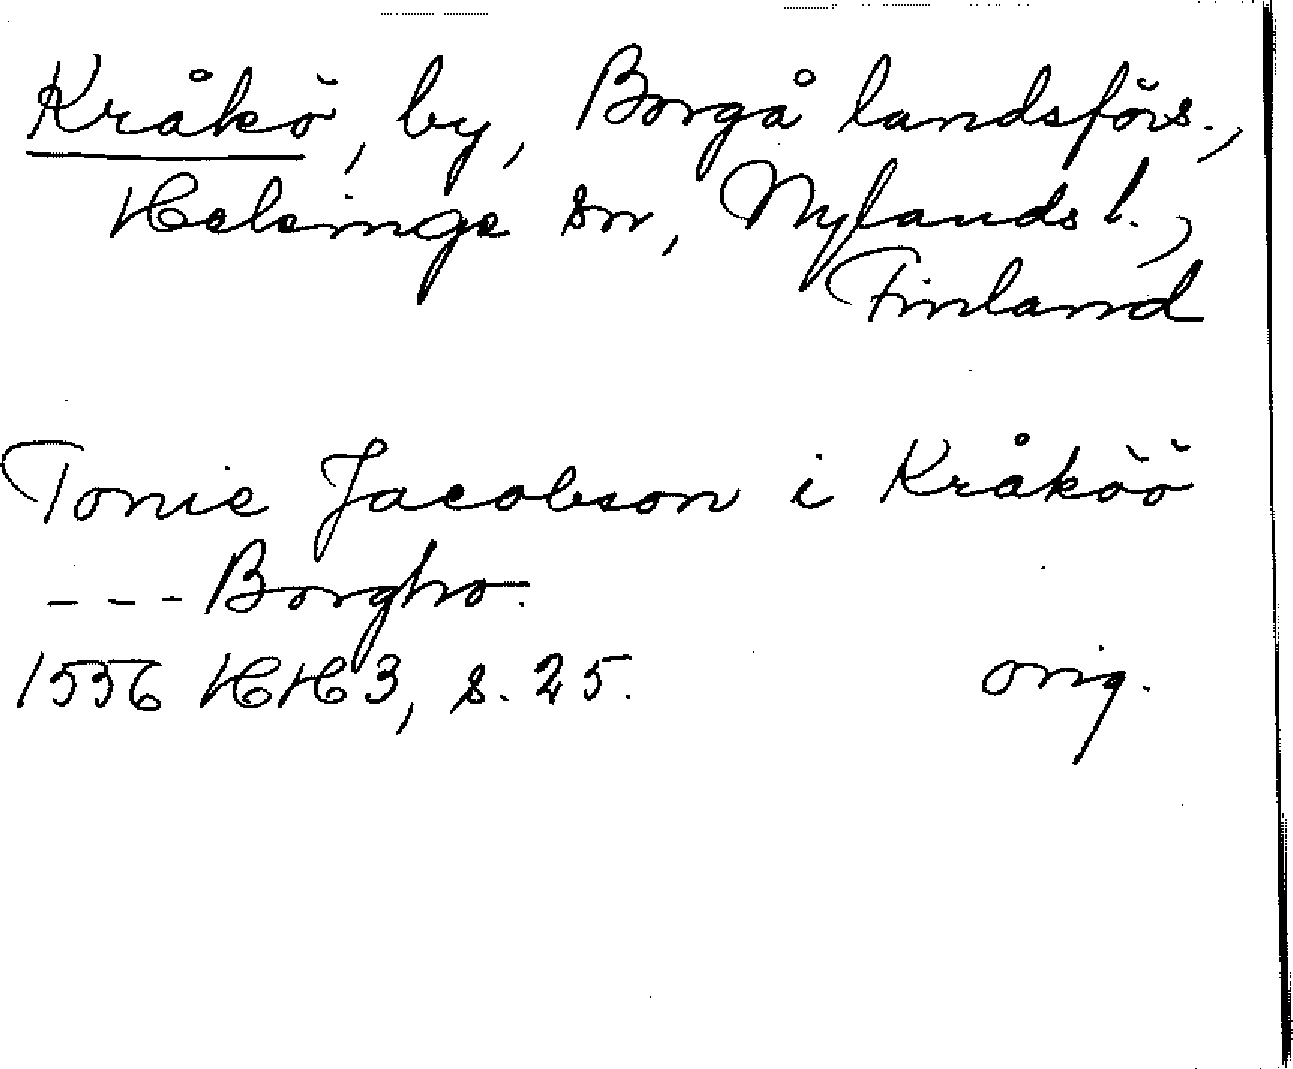 Kråkö, by, Borgå landsförs.,
Helsinge sn, Nylands l.,
Finland
Tonie Jacobson i Kråköö
--- Borgho.
1556 HH3, s. 25. orig.